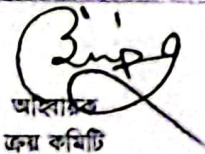 আহবায়ক
ক্রয় কমিটি